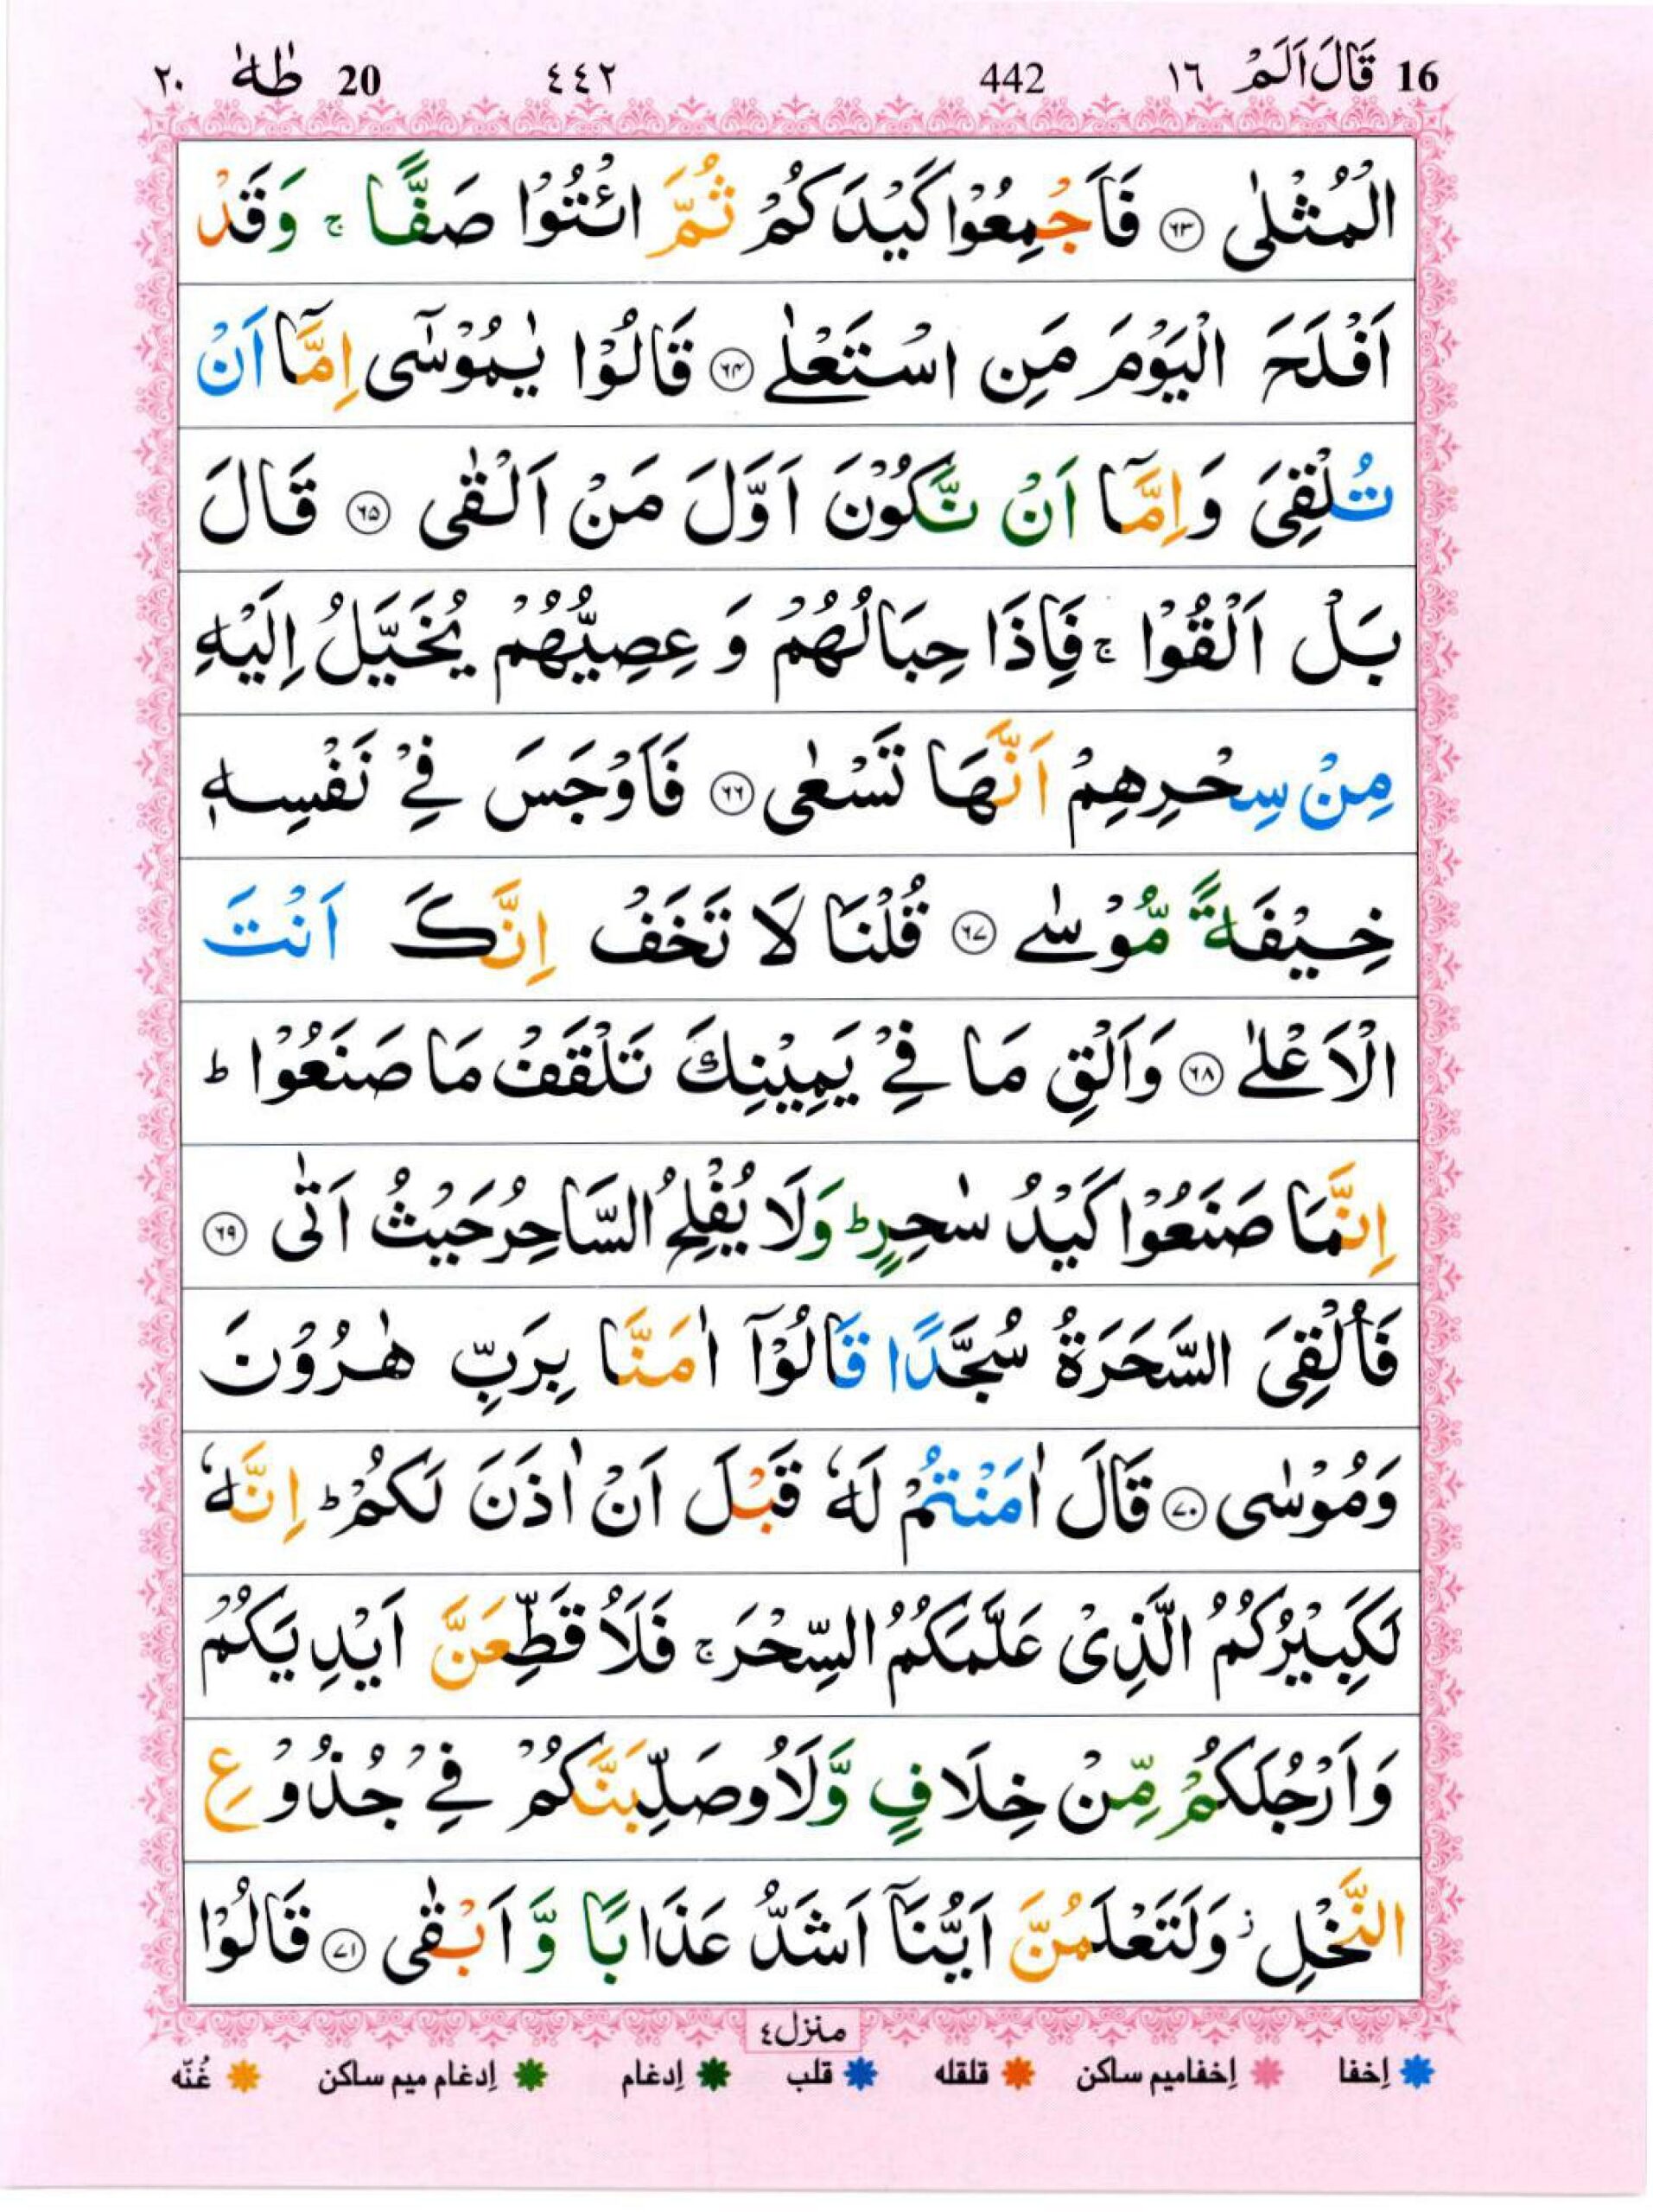 16 قَالَ اَلَمْ ١٦ 442 ٤٤٢ 20 طٰهٰ ٢٠
الْمُثْلٰى ۝٦٣ فَاَجْمِعُوْا كَيْدَكُمْ ثُمَّ ائْتُوْا صَفًّا ۚ وَقَدْ
اَفْلَحَ الْيَوْمَ مَنِ اسْتَعْلٰى ۝٦٤ قَالُوْا يٰمُوْسٰٓى اِمَّاۤ اَنْ
تُلْقِىَ وَاِمَّاۤ اَنْ نَّكُوْنَ اَوَّلَ مَنْ اَلْقٰى ۝٦٥ قَالَ
بَلْ اَلْقُوْا ۚ فَاِذَا حِبَالُهُمْ وَ عِصِيُّهُمْ يُخَيَّلُ اِلَيْهِ
مِنْ سِحْرِهِمْ اَنَّهَا تَسْعٰى ۝٦٦ فَاَوْجَسَ فِىْ نَفْسِهٖ
خِيْفَةً مُّوْسٰى ۝٦٧ قُلْنَا لَا تَخَفْ اِنَّكَ اَنْتَ
الْاَعْلٰى ۝٦٨ وَاَلْقِ مَا فِىْ يَمِيْنِكَ تَلْقَفْ مَا صَنَعُوْا ؕ
اِنَّمَا صَنَعُوْا كَيْدُ سٰحِرٍ ؕ وَلَا يُفْلِحُ السَّاحِرُ حَيْثُ اَتٰى ۝٦٩
فَاُلْقِىَ السَّحَرَةُ سُجَّدًا قَالُوْۤا اٰمَنَّا بِرَبِّ هٰرُوْنَ
وَمُوْسٰى ۝٧٠ قَالَ اٰمَنْتُمْ لَهٗ قَبْلَ اَنْ اٰذَنَ لَكُمْ ؕ اِنَّهٗ
لَكَبِيْرُكُمُ الَّذِىْ عَلَّمَكُمُ السِّحْرَ ۚ فَلَاُقَطِّعَنَّ اَيْدِيَكُمْ
وَاَرْجُلَكُمْ مِّنْ خِلَافٍ وَّلَاُوصَلِّبَنَّكُمْ فِىْ جُذُوْعِ
النَّخْلِ ۫ وَلَتَعْلَمُنَّ اَيُّنَاۤ اَشَدُّ عَذَابًا وَّ اَبْقٰى ۝٧١ قَالُوْا
منزل٤
إخفا إخفاميم ساكن قلقله قلب إدغام إدغام ميم ساكن غُنّه